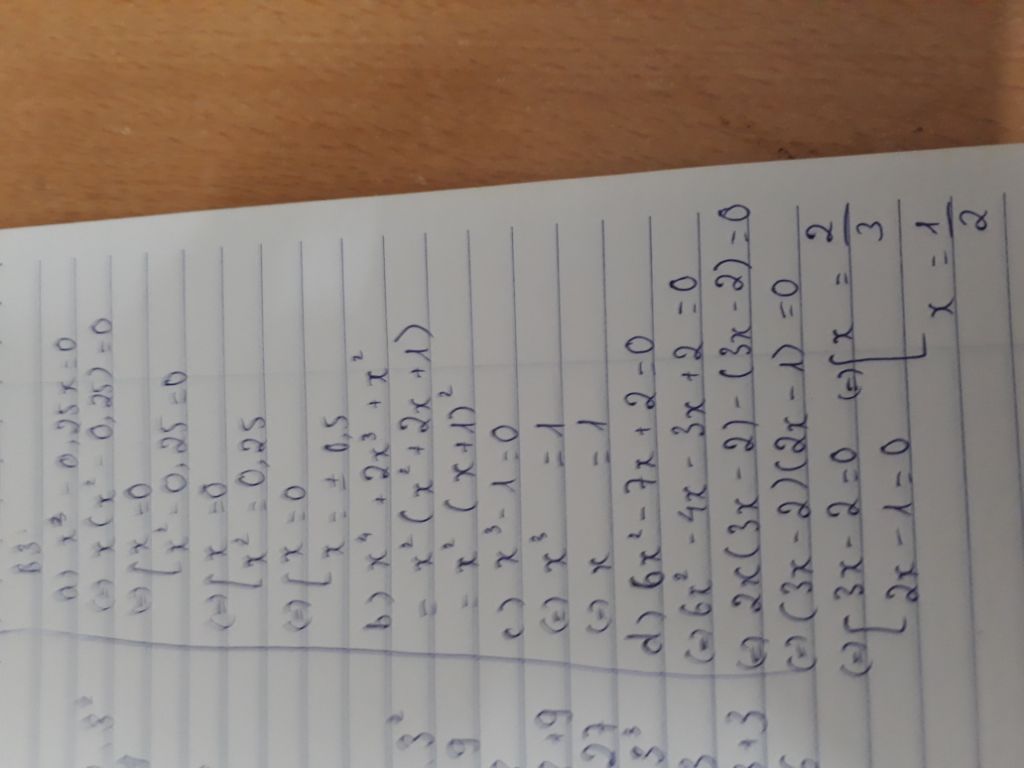 B3:
a) x³ - 0,25x = 0
(=) x(x² - 0,25) = 0
(=) [ x = 0
[ x² - 0,25 = 0
(=) [ x = 0
[ x² = 0,25
(=) [ x = 0
[ x = ± 0,5
b) x⁴ + 2x³ + x²
= x² (x² + 2x + 1)
= x² (x + 1)²
c) x³ - 1 = 0
(=) x³ = 1
(=) x = 1
d) 6x² - 7x + 2 = 0
(=) 6x² - 4x - 3x + 2 = 0
(=) 2x(3x - 2) - (3x - 2) = 0
(=) (3x - 2)(2x - 1) = 0
(=) [ 3x - 2 = 0 (=) [ x = 2/3
[ 2x - 1 = 0 [ x = 1/2
3²
9
+ 9
27
3³
+ 3